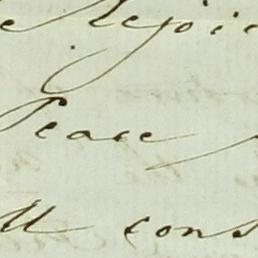 Rejoic
Peace
ll cons